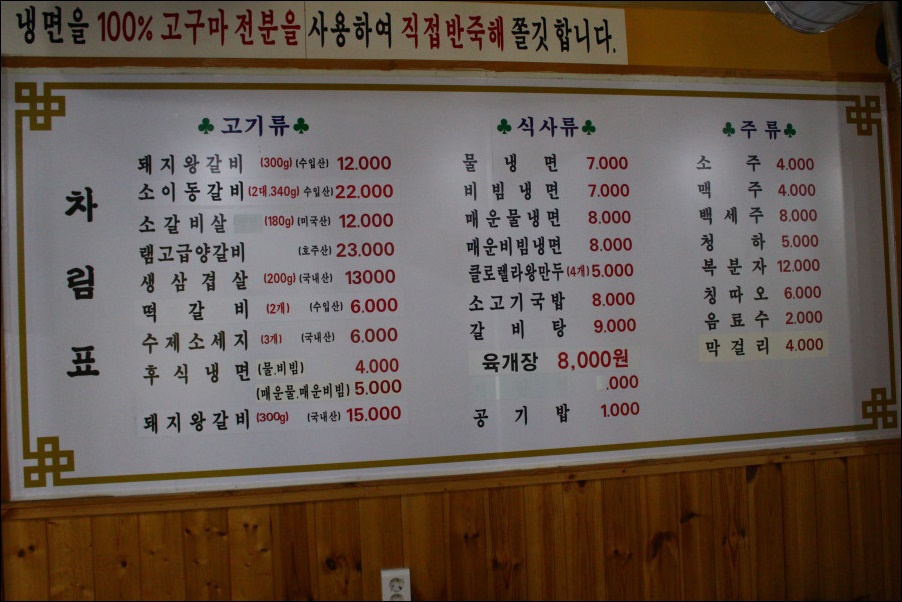 냉면을 100% 고구마 전분을 사용하여 직접반죽해 쫄깃합니다.
차림표
♣고기류♣
돼지왕갈비 (300g) (수입산) 12.000
소이동갈비 (2대.340g) 수입산) 22.000
소갈비살 (180g) (미국산) 12.000
램고급양갈비 (호주산) 23.000
생삼겹살 (200g) (국내산) 13000
떡갈비 (2개) (수입산) 6.000
수제소세지 (3개) (국내산) 6.000
후식냉면 (물.비빔) 4.000
(매운물.매운비빔) 5.000
돼지왕갈비 (300g) (국내산) 15.000
♣식사류♣
물냉면 7.000
비빔냉면 7.000
매운물냉면 8.000
매운비빔냉면 8.000
클로렐라왕만두 (4개) 5.000
소고기국밥 8.000
갈비탕 9.000
육개장 8,000원
.000
공기밥 1.000
♣주류♣
소주 4.000
맥주 4.000
백세주 8.000
청하 5.000
복분자 12.000
칭따오 6.000
음료수 2.000
막걸리 4.000